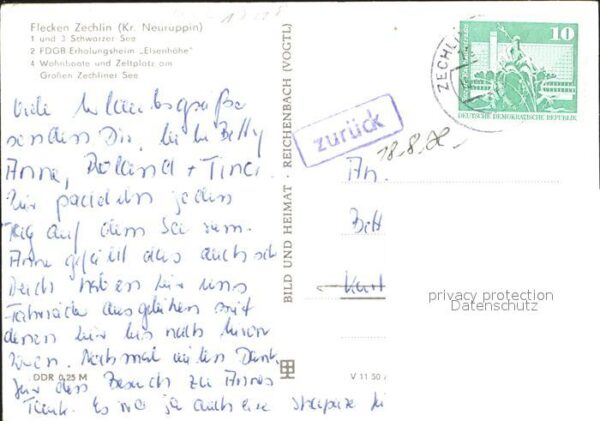 Flecken Zechlin (Kr. Neuruppin)
1 und 3 Schwarzer See
2 FDGB-Erholungsheim „Elsenhöhe"
4 Wohnboote und Zeltplatz am
Großen Zechliner See
Viele Urlaubsgrüße
senden Dir, liebe Betty
Anne, Roland + Tina.
Wir paddeln jeden
Tag auf dem See rum.
Anne gefällt das auch
haben wir uns
ausgeliehen mit
denen wir bis nach
Nochmal vielen Dank
für den Besuch zu Annes
Es war ja auch eine
DDR 0,25 M
BILD UND HEIMAT · REICHENBACH (VOGTL)
V 11 50
zurück
ZECHLIN
10
DEUTSCHE DEMOKRATISCHE REPUBLIK
18.8.
An
Bett
Kurt
privacy protection
Datenschutz